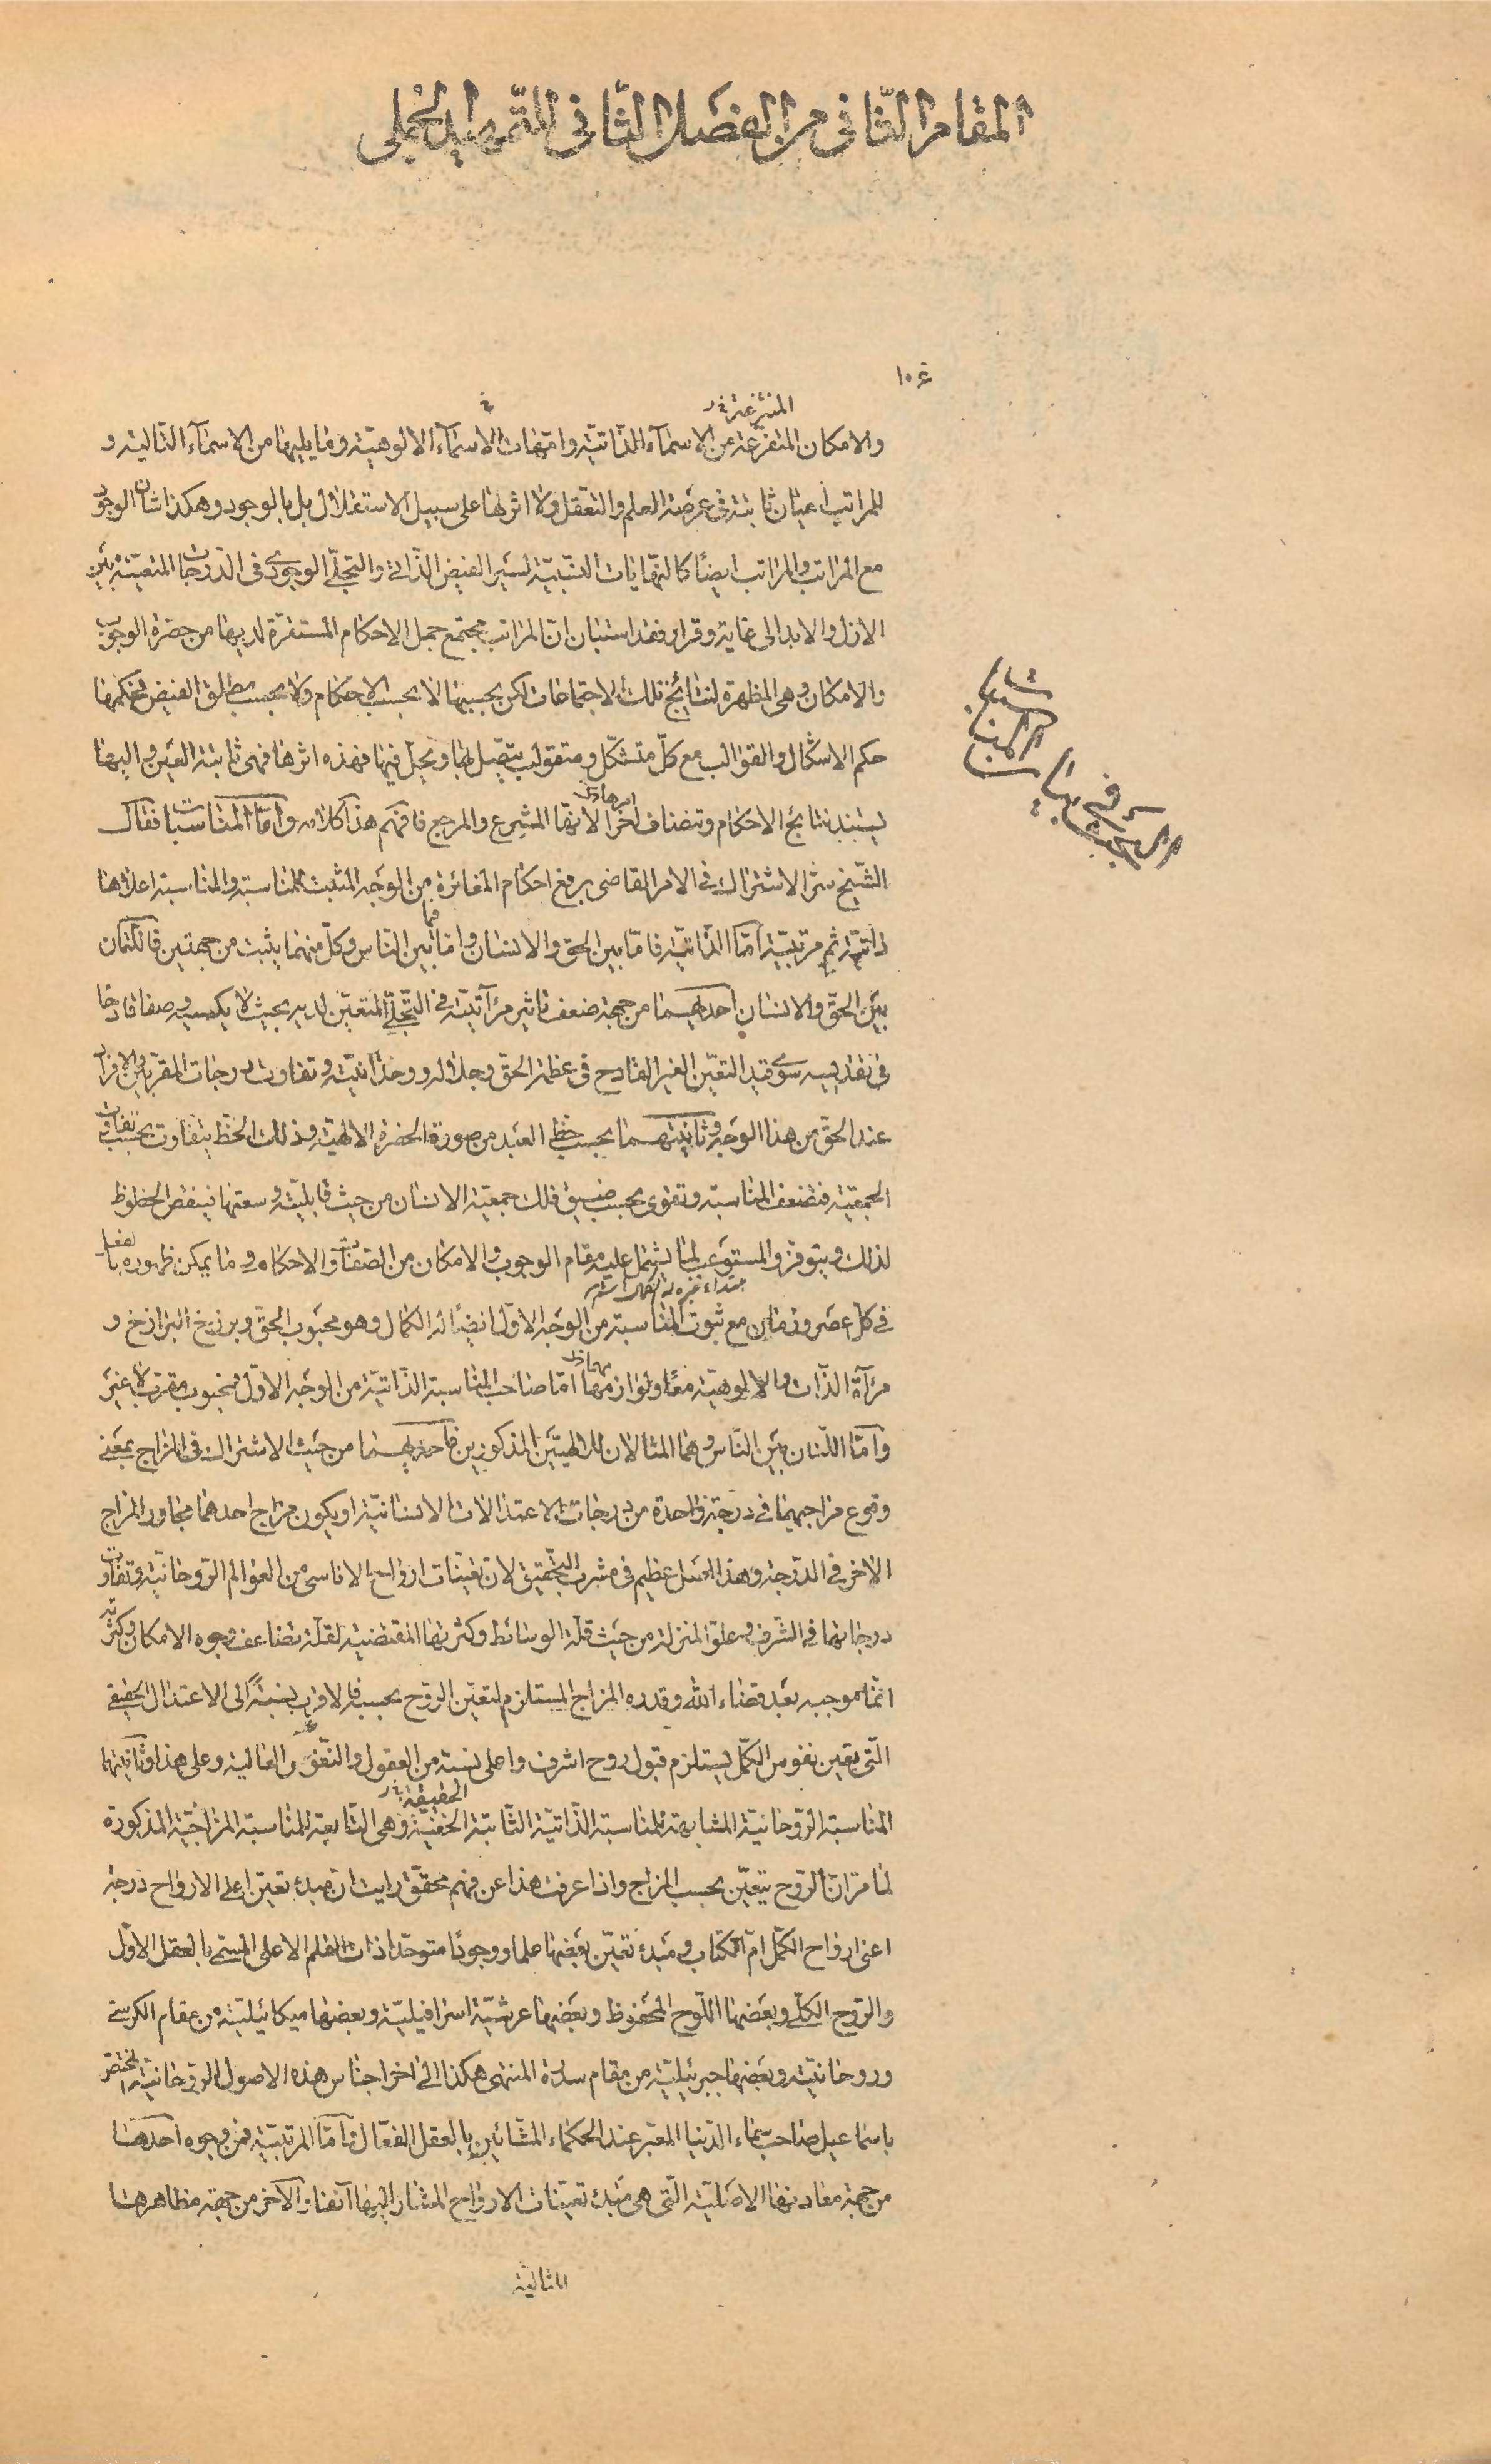 المقام الثّانی من الفصل الثّانی للتّمهید الجملی
١٠٤
المنتزعة خ‌ر
والامکان المتفرّعة من الاسمآء الذّاتیّة وامّهات الاسمآء الالوهیّة وما یلیها من الاسمآء التّالیة و
للمراتب اعیان ثابتة فی عرصة العلم والتّعقل ولا اثر لها علی سبیل الاستقلال بل بالوجود وهکذا شان الوجود
مع المراتب والمراتب ایضًا کالنّهایات النّسبیّة لسیر الفیض الذّاتی والتجلّی الوجودی فی الدّرجات المتعیّنة بین
الازل والابد الی غایة وقرار فقد استبان انّ المراتب مجتمع جمل الاحکام المستقرّة لدیها من حضرة الوجوب
والامکان وهی المظهرة لنتائج تلک الاجتماعات لکن بحسبها لا بحسب الاحکام ولا بحسب مطلق الفیض فحکمها
حکم الاشکال والقوالب مع کلّ متشکّل ومتقولب یتّصل بها ویحلّ فیها فهذه اثرها فهی ثابتة العین والیها
یستند نتائج الاحکام وتضاف اخرا لانّها المشرع والمرجع فافهم هذا کلامه وامّا المناسبات فقال
البحث فی بیان المناسبات
الشّیخ سرّ الاشتراک فی الامر القاضی برفع احکام المغائرة من الوجه المثبت للمناسبة والمناسبة اعلاها
ذاتیّة ثم مرتبیّة امّا الذّاتیّة فامّا بین الحق والانسان وامّا فیما بین النّاس وکلّ منهما یثبت من جهتین فاللّتان
بین الحقّ والانسان احدیهما من جهة ضعف تاثیر مرآتیّته فی التّجلّی المتعیّن لدیه بحیث لا یکسبه وصفا قادحًا
فی تقدیسه سوی قید التعیّن الغیر القادح فی عظمة الحقّ وجلاله ووحدانیّته وتفاوت درجات المقرّبین والافراد
عند الحقّ من هذا الوجه وثانیتهما بحسب حظّ العبد من صورة الحضرة الالهیّة وذلک الحظّ یتفاوت بحسب تفاوت
الجمعیّة فتضعف المناسبة وتقوی بحسب ضیق فلک جمعیّة الانسان من حیث قابلیّته وسعتها فینقص الحظوظ
لذلک ویتوفّر والمستوعب لما یشتمل علیه مقام الوجوب والامکان من الصّفات والاحکام وما یمکن ظهوره بالفعل
فی کلّ عصر وزمان مع ثبوت المناسبة من الوجه الاوّل ایضًا له الکمال وهو محبوب الحقّ وبرزخ البرازخ و
مرآة الذّات والالوهیّة معًا ولوازمها امّا صاحب المناسبة الذّاتیّة من الوجه الاوّل فمحبوب مقرّب لا غیر
وامّا اللّتان بین النّاس وهما المثالان للالهیّتین المذکورین فاحدیهما من حیث الاشتراک فی المزاج بمعنی
وقوع مزاجیهما فی درجة واحدة من درجات الاعتدالات الانسانیّة او یکون مزاج احدهما مجاور المزاج
الاخر فی الدّرجة وهذا اصل عظیم فی مشرب التّحقیق لانّ تعیّنات ارواح الاناسی من العوالم الرّوحانیّة وتفاوت
درجاتها فی الشّرف وعلوّ المنزلة من حیث قلّة الوسائط وکثرتها المقتضیة لقلّة تضاعف وجوه الامکان وکثرته
انّما موجبه بعد قضاء الله وقدره المزاج المستلزم لتعیّن الرّوح بحسبه فالاقرب نسبةً الی الاعتدال الحقیقی
الّتی یعین نفوس الکمّل یستلزم قبول روح اشرف واعلی نسبة من العقول والنّفوس العالیة وعلی هذا وثانیتهما
الحقیقیّة خ‌ر
المناسبة الرّوحانیّة المشابهة للمناسبة الذّاتیّة الثّابتة الخفیّة وهی التّابعة للمناسبة المزاجیّة المذکورة
لما مرّ انّ الرّوح یتعیّن بحسب المزاج واذا عرفت هذا عن فهم محقّق رایت ان مبدء تعیّن اعلی الارواح درجة
اعنی ارواح الکمّل امّ الکتاب ومبدء تعیّن بعضها علما ووجودًا متوحّدا ذات القلم الاعلی المسمّی بالعقل الاوّل
والرّوح الکلّی وبعضها اللّوح المحفوظ وبعضها عرشیّة اسرافیلیّة وبعضها میکائیلیّة من مقام الکرسی
وروحانیّته وبعضها جبرئیلیّة من مقام سدرة المنتهی هکذا الی اخر اجناس هذه الاصول الرّوحانیّة المختصّ
باسماعیل صاحب سماء الدّنیا المعبّر عند الحکماء المشّائین بالعقل الفعّال وامّا المرتبیّة فمن وجوه احدها
من جهة معادنها الاصلیّة الّتی هی مبدء تعیّنات الارواح المشار الیها آنفا والآخر من جهة مظاهرها
المثالیّة